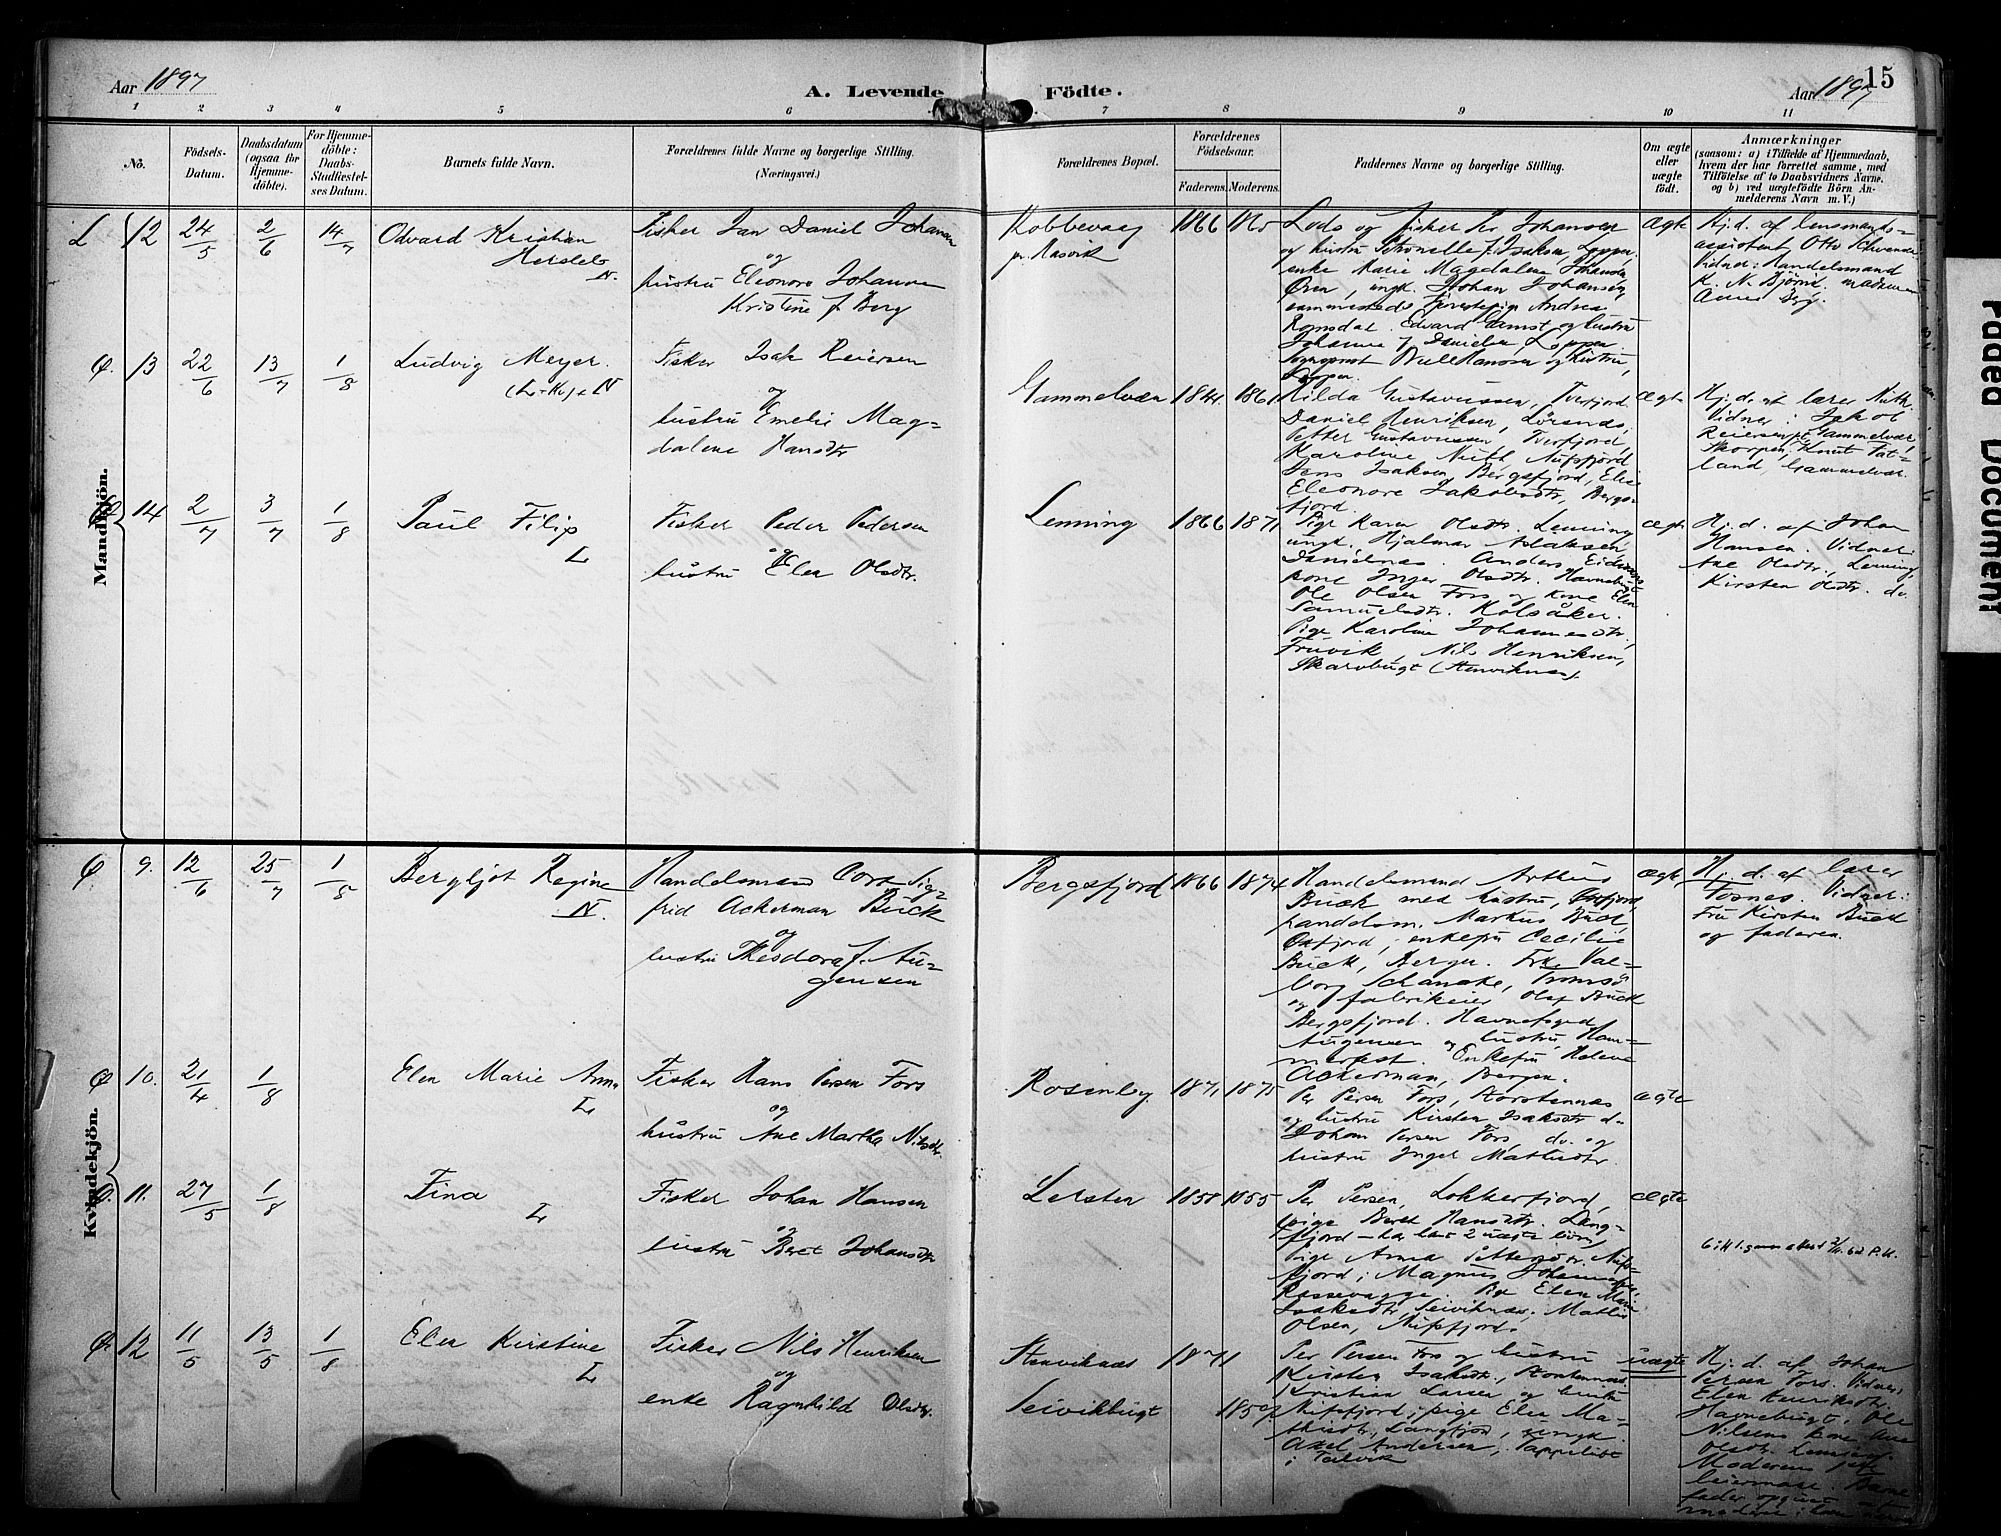 Aar 1897
A. Levende Födte.
Aar 1897
15
1 2 3 4 5 6 7 8 9 10 11
No.
Födsels-Datum.
Daabsdatum (ogsaa for Hjemme-döbte).
For Hjemme-döbte: Daabs-Stadfæstel-ses Datum.
Barnets fulde Navn.
Forældrenes fulde Navne og borgerlige Stilling.
(Næringsvei.)
Forældrenes Bopæl.
Forældrenes Födselsaar.
Faderens. Moderens.
Faddernes Navne og borgerlige Stilling.
Om ægte eller uægte födt.
Anmærkninger
(saasom: a) i Tilfælde af Hjemmedaab,
hvem der har forrettet samme, med
Tilföielse af to Daabsvidners Navne.
og b) ved uægtefödte Börn An-
melderens Navn m. V.)
Mandkjön.
L 12 24/5 2/6 14/7 Odvard Kristian
Hersleb
N.
Fisker Jan Daniel Johansen
og
hustru Eleonora Johanne
Kristine f. Berg
Kobbevaag
pr. Hasvik
1866 1865
Lods og fisker Kr. Johansen
og hustru Petronelle f. Isaksen, Loppen,
enke Marie Magdalene Johansen
Øren, ungk. Johan Johansen
sammesteds Tjenestepige Andrea
Romsdal. Edvard Samst og hustru
Johanne f. Danielsen, Loppen.
Sogneprest Hansen og hustru,
Loppen.
ægte
Hj.d. af lensmands-
assistent Otto Schwenke
Vidner: Handelsmand
K. N. Björnö. madame
Anne Berg.
Ø. 13 22/6 13/7 1/8 Ludvig Meyer.
(L+Kv)+N
Fisker Isak Reiersen
og
hustru Emelie Mag-
dalene Hansdtr
Gammelvær
1841 1861
Hilda Gustavussen, Tverfjord
Daniel Henriksen, Lörsnæs,
Petter Gustavussen, Tverfjord,
Karoline Nutt, Nufsfjord
Jens Isaksen, Bergsfjord, Elise
Eleonore Jakobsdtr, Bergs-
fjord.
ægte
Hj.d. af lærer Nuth.
Vidner: Jakob
Reiersen, Gammelvær,
Skorpen, Knut Fat-
land, Gammelvær.
14 2/7 3/7 1/8 Paul Filip
L
Fisker Peder Pedersen
og
hustru Elen Olsdtr.
Lenning
1866 1871
Pige Karen Olsdtr. Lenning
ungk. Hjalmar Aslaksen,
Danielnæs. Anders Eidsnæs
kone Inger Olsdtr. Havnebugt
Ole Olsen Fors og kone Elen
Samuelsdtr. Kolsåker.
Pige Karoline Johannesdtr.
Fruvik, Nils Henriksen,
Skarvbugt (Stenviknæs).
ægte
Hj.d. af Johan
Hansen. Vidner:
Ane Olsdtr, Lenning,
Kirsten Olsdtr. do.
Kvindekjön.
Ø. 9. 12/6 25/7 1/8 Bergljot Regine
N.
Handelsmand Cort Sig-
frid Ackerman Buck
og
hustru Theodora f. Au-
gensen
Bergsfjord
1866 1874
Handelsmand Arthur
Buck med hustru, Øxfjord,
handelsm. Markus Buck,
Øxfjord, enkefru Cecilie
Buck, Bergen. Frk. Val-
borg Schanche, Tromsö
og fabrikeier Olaf Buck
Bergsfjord. Havnefoged
Augensen og hustru, Ham-
merfest. Enkefru Helene
Ackerman, Bergen.
ægte
Hj.d. af lærer
Fosnes. Vidner:
Fru Kirsten Buck
og faderen.
Ø 10. 21/4 1/8 Elen Marie Anna
L
Fisker Hans Persen Fors
og
hustru Ane Marthe Nilsdtr.
Rosenby
1871 1875
Per Persen Fors, Storstennæs
og hustru Kirsten Isaksdtr do
Johan Persen Fors, do. og
hustru Inger Mathisdtr.
ægte
Ø. 11. 27/5 1/8 Tina
L
Fisker Johan Hansen
og
hustru Beret Johansdtr
Lersten
1858 1855
Per Persen, Lokkerfjord,
pige Beret Hansdtr. Lang-
fjord – har havt 2 uægte börn,
Pige Anna Pettersdtr. Nufs-
fjord; Magnus Johannesen,
Rossevagge. Pige Elen Marie
Isaksdtr, Seiviknæs; Mathis
Olsen, Nufsfjord.
ægte
Ø. 12 11/5 13/5 1/8 Elen Kirstine
L
Fisker Nils Henriksen
og
enke Ragnhild Olsdtr.
Stenviknæs
Seivikbugt
1871
Per Persen Fors og hustru
Kirsten Isaksdtr., Storstennæs.
Kristian Larsen og hustru
Nufsfjord; pige Elen Ma-
thisdtr, Langfjord, ungk.
Axel Andersen, Tappeluft
i Talvik
uægte
Hj.d. af Johan
Persen Fors. Vidner,
Elen Henriksdtr.
Havnebugt. Ole
Nilsens kone Ane
Olsdtr. Lenning
Moderens
leiermaal. Barne-
fader opgivet at
Faded Document